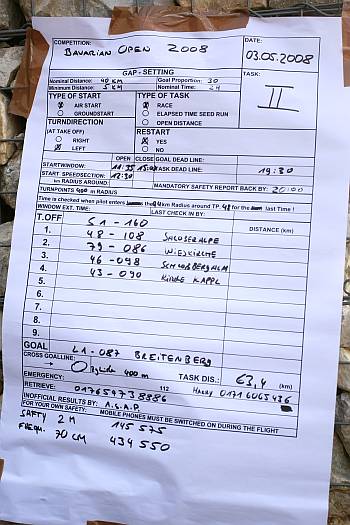 COMPETITION: BAVARIAN OPEN 2008
DATE: 03.05.2008
GAP - SETTING
Nominal Distance: 40 KM Goal Proportion: 30
Minimum Distance: 5 KM Nominal Time:
TASK: II
TYPE OF START TYPE OF TASK
AIR START RACE
GROUNDSTART ELAPSED TIME SEED RUN
OPEN DISTANCE
TURNDIRECTION
(AT TAKE OFF) RESTART
RIGHT YES
LEFT NO
OPEN CLOSE GOAL DEAD LINE:
STARTWINDOW: TASK DEAD LINE: 19:30
START SPEEDSECTION: 12:30
km RADIUS AROUND: MANDATORY SAFETY REPORT BACK BY: 20:00
TURNPOINTS 400 m RADIUS
Time is checked when pilot enters the km Radius around TP 48 for the last Time !
WINDOW EXT. TIME: LAST CHECK IN BY:
T.OFF 51 - 160 DISTANCE (km)
1. 48 - 108
2. 79 - 086 WIESKIRCHE
3. 46 - 098
4. 43 - 090 KIRCHE KAPPL
5.
6.
7.
8.
9.
GOAL L1 - 087 BREITENBERG
CROSS GOALLINE: 400 m TASK DIS.: 63,4 (km)
EMERGENCY: 112
RETRIEVE: 017659738886 HARRY 01716065436
INOFFICIAL RESULTS BY: A.S.A.P.
FOR YOUR OWN SAFETY: MOBILE PHONES MUST BE SWITCHED ON DURING THE FLIGHT
SAFTY 2 M 145 575
FREQU. 70 CM 434 550